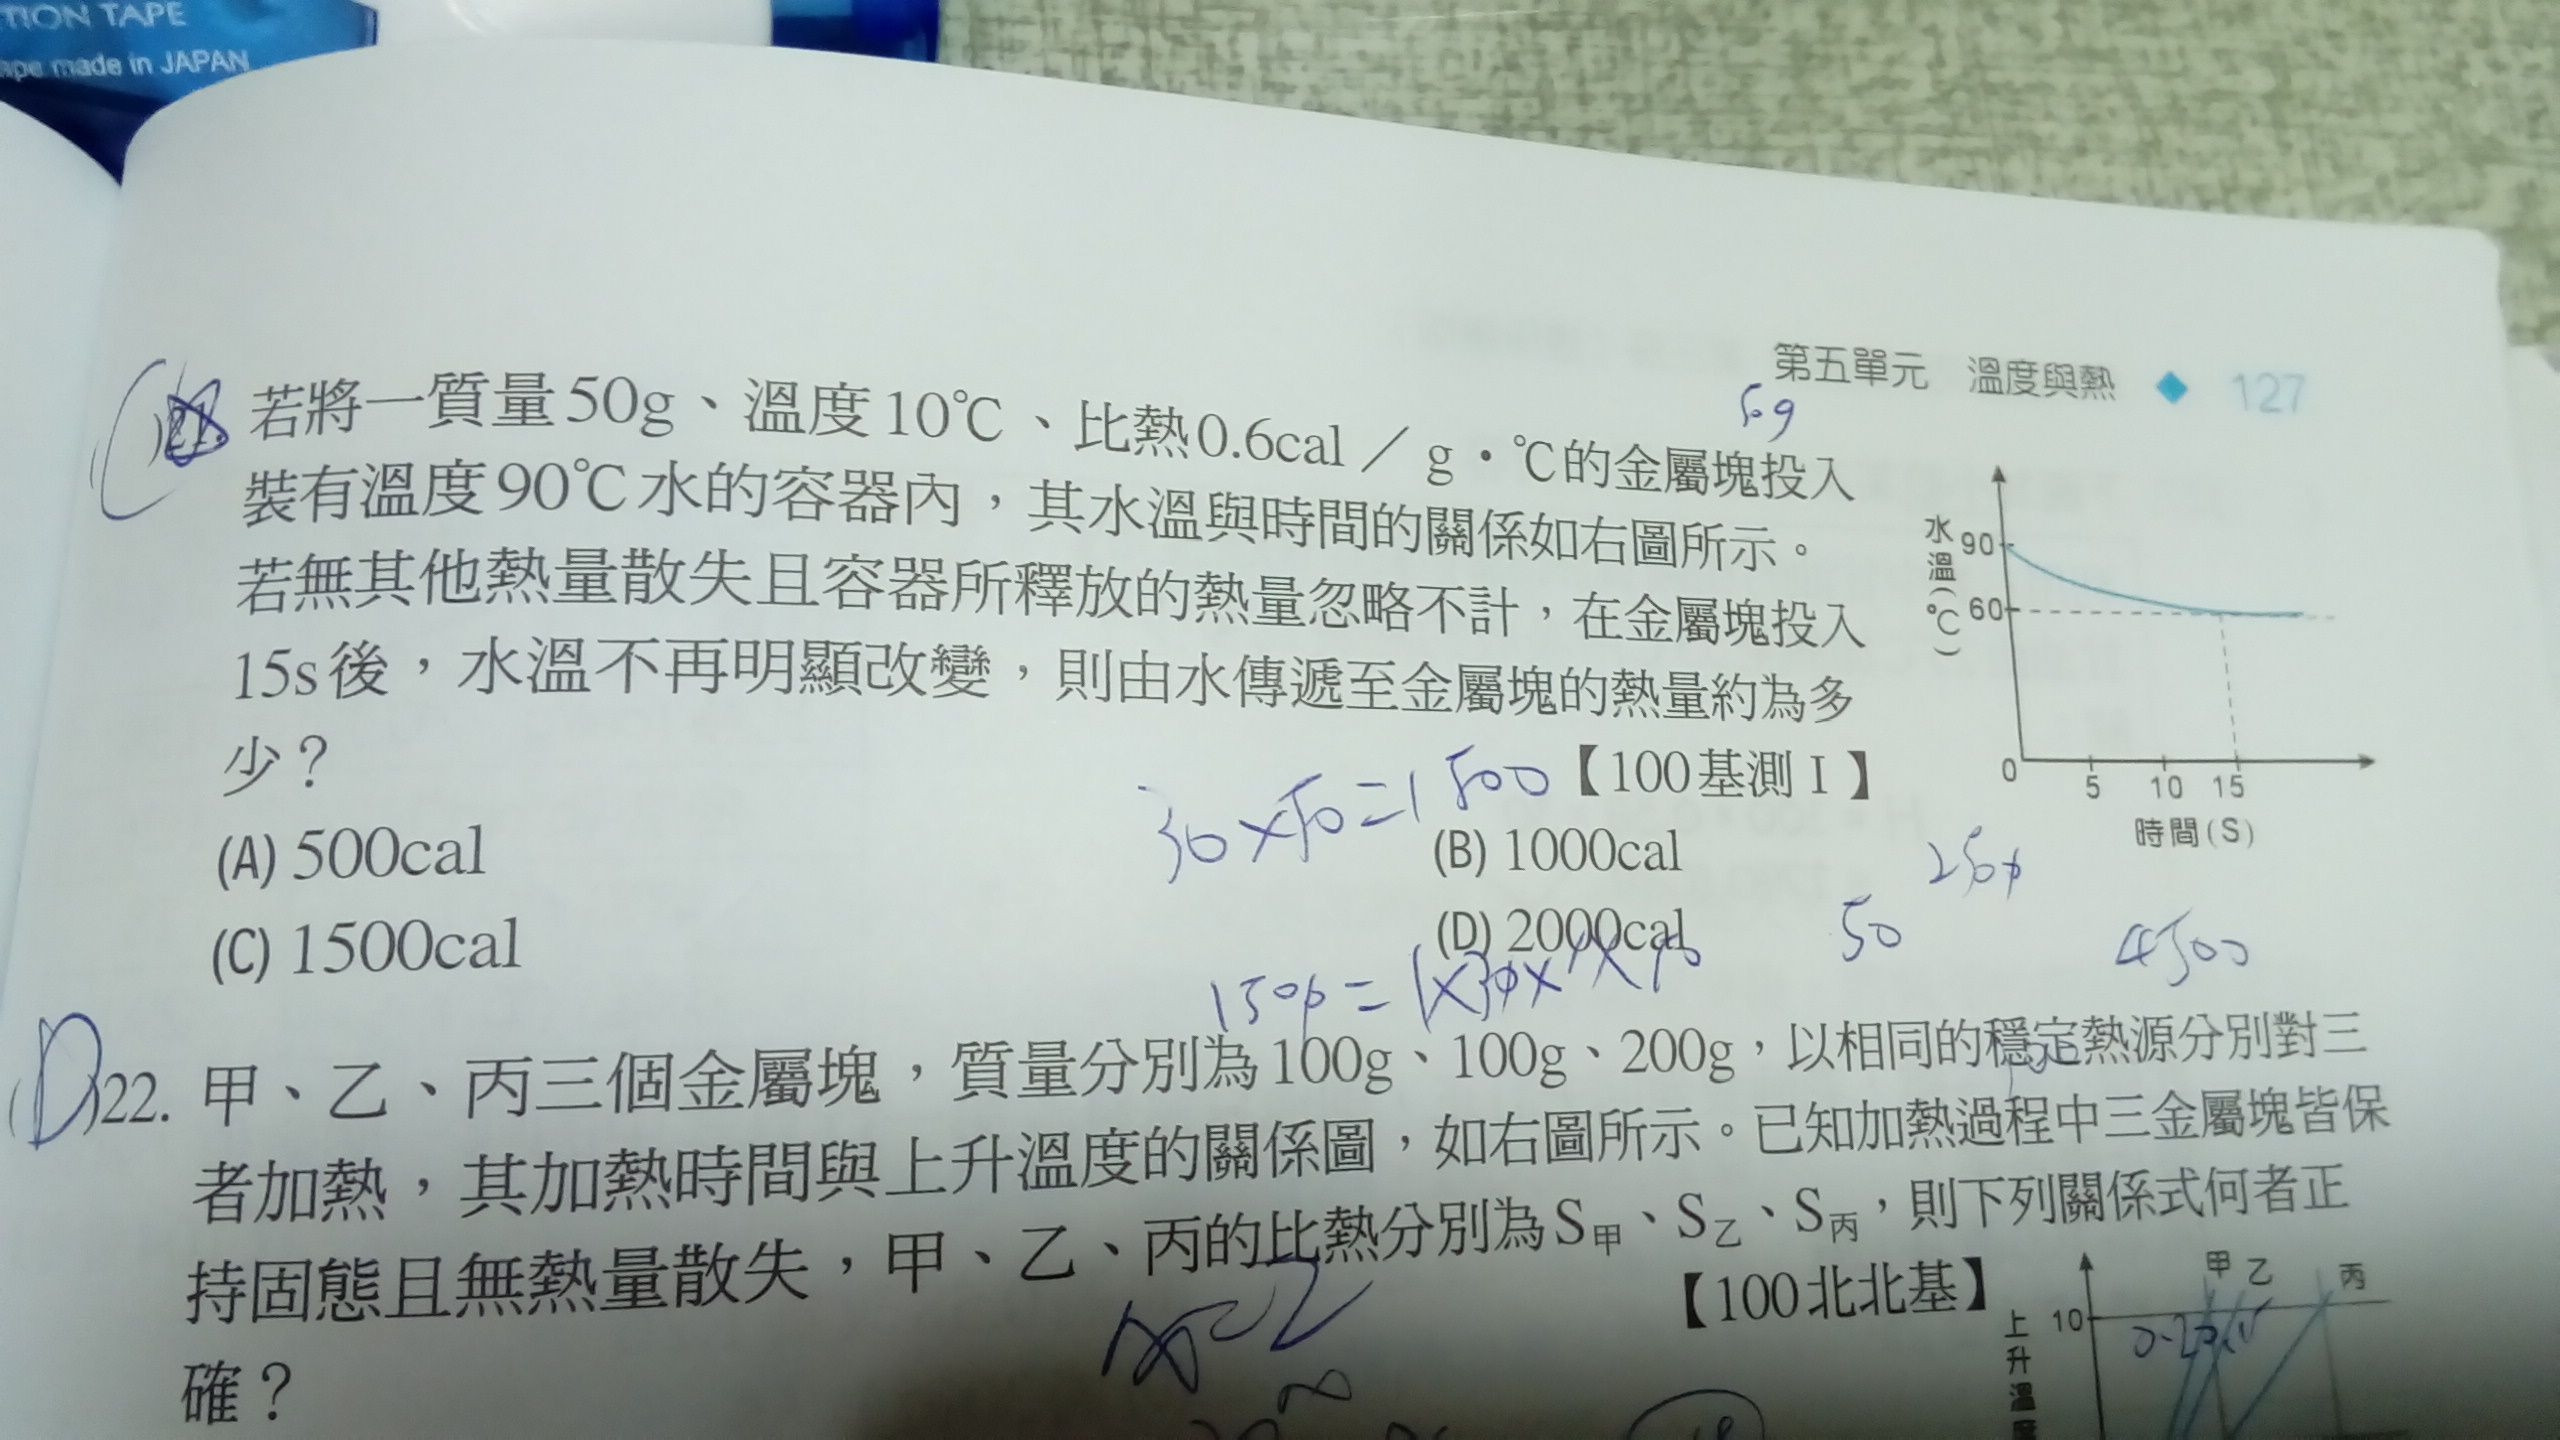 TION TAPE
ape made in JAPAN
第五單元 溫度與熱 ◆ 127
50g
21. 若將一質量50g、溫度10℃、比熱0.6cal／g·℃的金屬塊投入
裝有溫度90℃水的容器內，其水溫與時間的關係如右圖所示。
若無其他熱量散失且容器所釋放的熱量忽略不計，在金屬塊投入
15s後，水溫不再明顯改變，則由水傳遞至金屬塊的熱量約為多
少？
【100基測Ⅰ】
30×50=1500
(A) 500cal
(B) 1000cal
(C) 1500cal
(D) 2000cal
水溫(℃)
90
60
0 5 10 15
時間(S)
50
4500
(D)22. 甲、乙、丙三個金屬塊，質量分別為100g、100g、200g，以相同的穩定熱源分別對三
者加熱，其加熱時間與上升溫度的關係圖，如右圖所示。已知加熱過程中三金屬塊皆保
持固態且無熱量散失，甲、乙、丙的比熱分別為S甲、S乙、S丙，則下列關係式何者正
確？
【100北北基】
甲 乙 丙
10
上升溫度